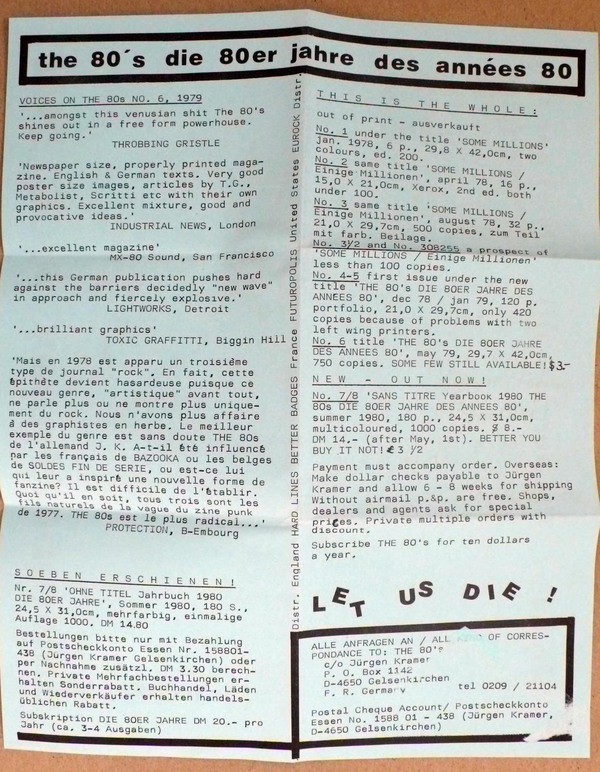 the 80´s die 80er jahre des années 80
VOICES ON THE 80s NO. 6, 1979
'...amongst this venusian shit The 80's
shines out in a free form powerhouse.
Keep going.'
THROBBING GRISTLE
'Newspaper size, properly printed maga-
zine. English & German texts. Very good
poster size images, articles by T.G.,
Metabolist, Scritti etc with their own
graphics. Excellent mixture, good and
provocative ideas.'
INDUSTRIAL NEWS, London
'...excellent magazine'
MX-80 Sound, San Francisco
'...this German publication pushes hard
against the barriers decidedly "new wave"
in approach and fiercely explosive.'
LIGHTWORKS, Detroit
'...brilliant graphics'
TOXIC GRAFFITTI, Biggin Hill
'Mais en 1978 est apparu un troisième
type de journal "rock". En fait, cette
épithète devient hasardeuse puisque ce
nouveau genre, "artistique" avant tout,
ne parle plus ou ne montre plus unique-
ment du rock. Nous n'avons plus affaire
à des graphistes en herbe. Le meilleur
exemple du genre est sans doute THE 80s
de l'allemand J. K. A-t-il été influencé
par les français de BAZOOKA ou les belges
de SOLDES FIN DE SERIE, ou est-ce lui
qui leur a inspiré une nouvelle forme de
fanzine? Il est difficile de l'établir.
Quoi qu'il en soit, tous trois sont les
fils naturels de la vague du zine punk
de 1977. THE 80s est le plus radical...'
PROTECTION, B-Embourg
SOEBEN ERSCHIENEN!
Nr. 7/8 'OHNE TITEL Jahrbuch 1980
DIE 80ER JAHRE', Sommer 1980, 180 S.,
24,5 X 31,0cm, mehrfarbig, einmalige
Auflage 1000. DM 14.80
Bestellungen bitte nur mit Bezahlung
auf Postscheckkonto Essen Nr. 158801-
438 (Jürgen Kramer Gelsenkirchen) oder
per Nachnahme zusätzl. DM 3.30 berech-
nen. Private Mehrfachbestellungen er-
halten Sonderrabatt. Buchhandel, Läden
und Wiederverkäufer erhalten handels-
üblichen Rabatt.
Subskription DIE 80ER JAHRE DM 20.- pro
Jahr (ca. 3-4 Ausgaben)
Distr. England HARD LINES BETTER BADGES France FUTUROPOLIS United States EUROCK Distr.
THIS IS THE WHOLE:
out of print - ausverkauft
No. 1 under the title 'SOME MILLIONS'
jan. 1978, 6 p., 29,8 X 42,0cm, two
colours, ed. 200.
No. 2 same title 'SOME MILLIONS /
Einige Millionen', april 78, 16 p.,
15,0 X 21,0cm, Xerox, 2nd ed. both
under 100.
No. 3 same title 'SOME MILLIONS /
Einige Millionen', august 78, 32 p.,
21,0 X 29,7cm, 500 copies, zum Teil
mit farb. Beilage.
No. 3/2 and No. 308255 a prospect of
'SOME MILLIONS / Einige Millionen'
less than 100 copies.
No. 4-5 first issue under the new
title 'THE 80's DIE 80ER JAHRE DES
ANNEES 80', dec 78 / jan 79, 120 p.
portfolio, 21,0 X 29,7cm, only 420
copies because of problems with two
left wing printers.
No. 6 title 'THE 80's DIE 80ER JAHRE
DES ANNEES 80', may 79, 29,7 X 42,0cm,
750 copies. SOME FEW STILL AVAILABLE! $3.-
NEW - OUT NOW!
No. 7/8 'SANS TITRE Yearbook 1980 THE
80s DIE 80ER JAHRE DES ANNEES 80',
summer 1980, 180 p., 24,5 X 31,0cm,
multicoloured, 1000 copies. $ 8.-
DM 14.- (after May, 1st). BETTER YOU
BUY IT NOT! £ 3 1/2
Payment must accompany order. Overseas:
Make dollar checks payable to Jürgen
Kramer and allow 6 - 8 weeks for shipping
Without airmail p.&p. are free. Shops,
dealers and agents ask for special
prices. Private multiple orders with
discount.
Subscribe THE 80's for ten dollars
a year.
LET US DIE !
ALLE ANFRAGEN AN / ALL OF CORRES-
PONDANCE TO: THE 80's
c/o Jürgen Kramer
P. O. Box 1142
D-4650 Gelsenkirchen
F. R. Germany tel 0209 / 21104
Postal Cheque Account/ Postscheckkonto
Essen No. 1588 01 - 438 (Jürgen Kramer,
D-4650 Gelsenkirchen)